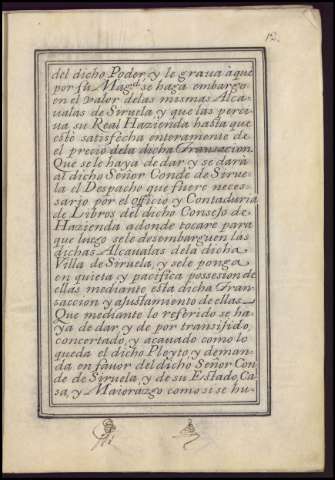 12.
del dicho Poder, y le graua à que
por su Magd. se haga embargo
en el valor delas mismas Alca-
ualas de Siruela y que las perci-
ua su Real Hazienda hasta que
esté satisfecha enteramente de
el precio dela dicha Transacion.
Que sele haya de dar y se dará
al dicho Señor Conde de Sirue-
la el Despacho que fuere neces-
sario por el officio y Contaduria
de Libros del dicho Consejo de
Hazienda adonde tocare para
que luego sele desembarguen las
dichas Alcaualas dela dicha
Villa de Siruela, y sele ponga
en quieta y pacifica possesion de
ellas mediante esta dicha Tran-
saccion y ajustamiento de ellas
Que mediante lo referido se ha-
ya de dar y de por transigido,
concertado, y acauado como lo
queda el dicho Pleyto y deman-
da en fauor del dicho Señor Con-
de de Siruela, y de su Estado, Ca-
sa, y Maiorazgo como si se hu-